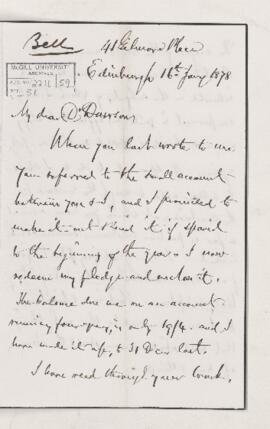 Bell
41 Gilmore Place
McGILL UNIVERSITY
ARCHIVES
ACC. NO. 2211 59
REF. 51
Edinburgh 16th Jany 1878
My dear Dr Dawson
When you last wrote to me
you referred to the small account
between you & I, and I promised to
make it out & send it if spared
to the beginning of the year & I now
redeem my pledge and enclose it.
The balance due me on an account
running four years, is only 19/4. and I
have made it up, to 31 Decr last.
I have read through your book,